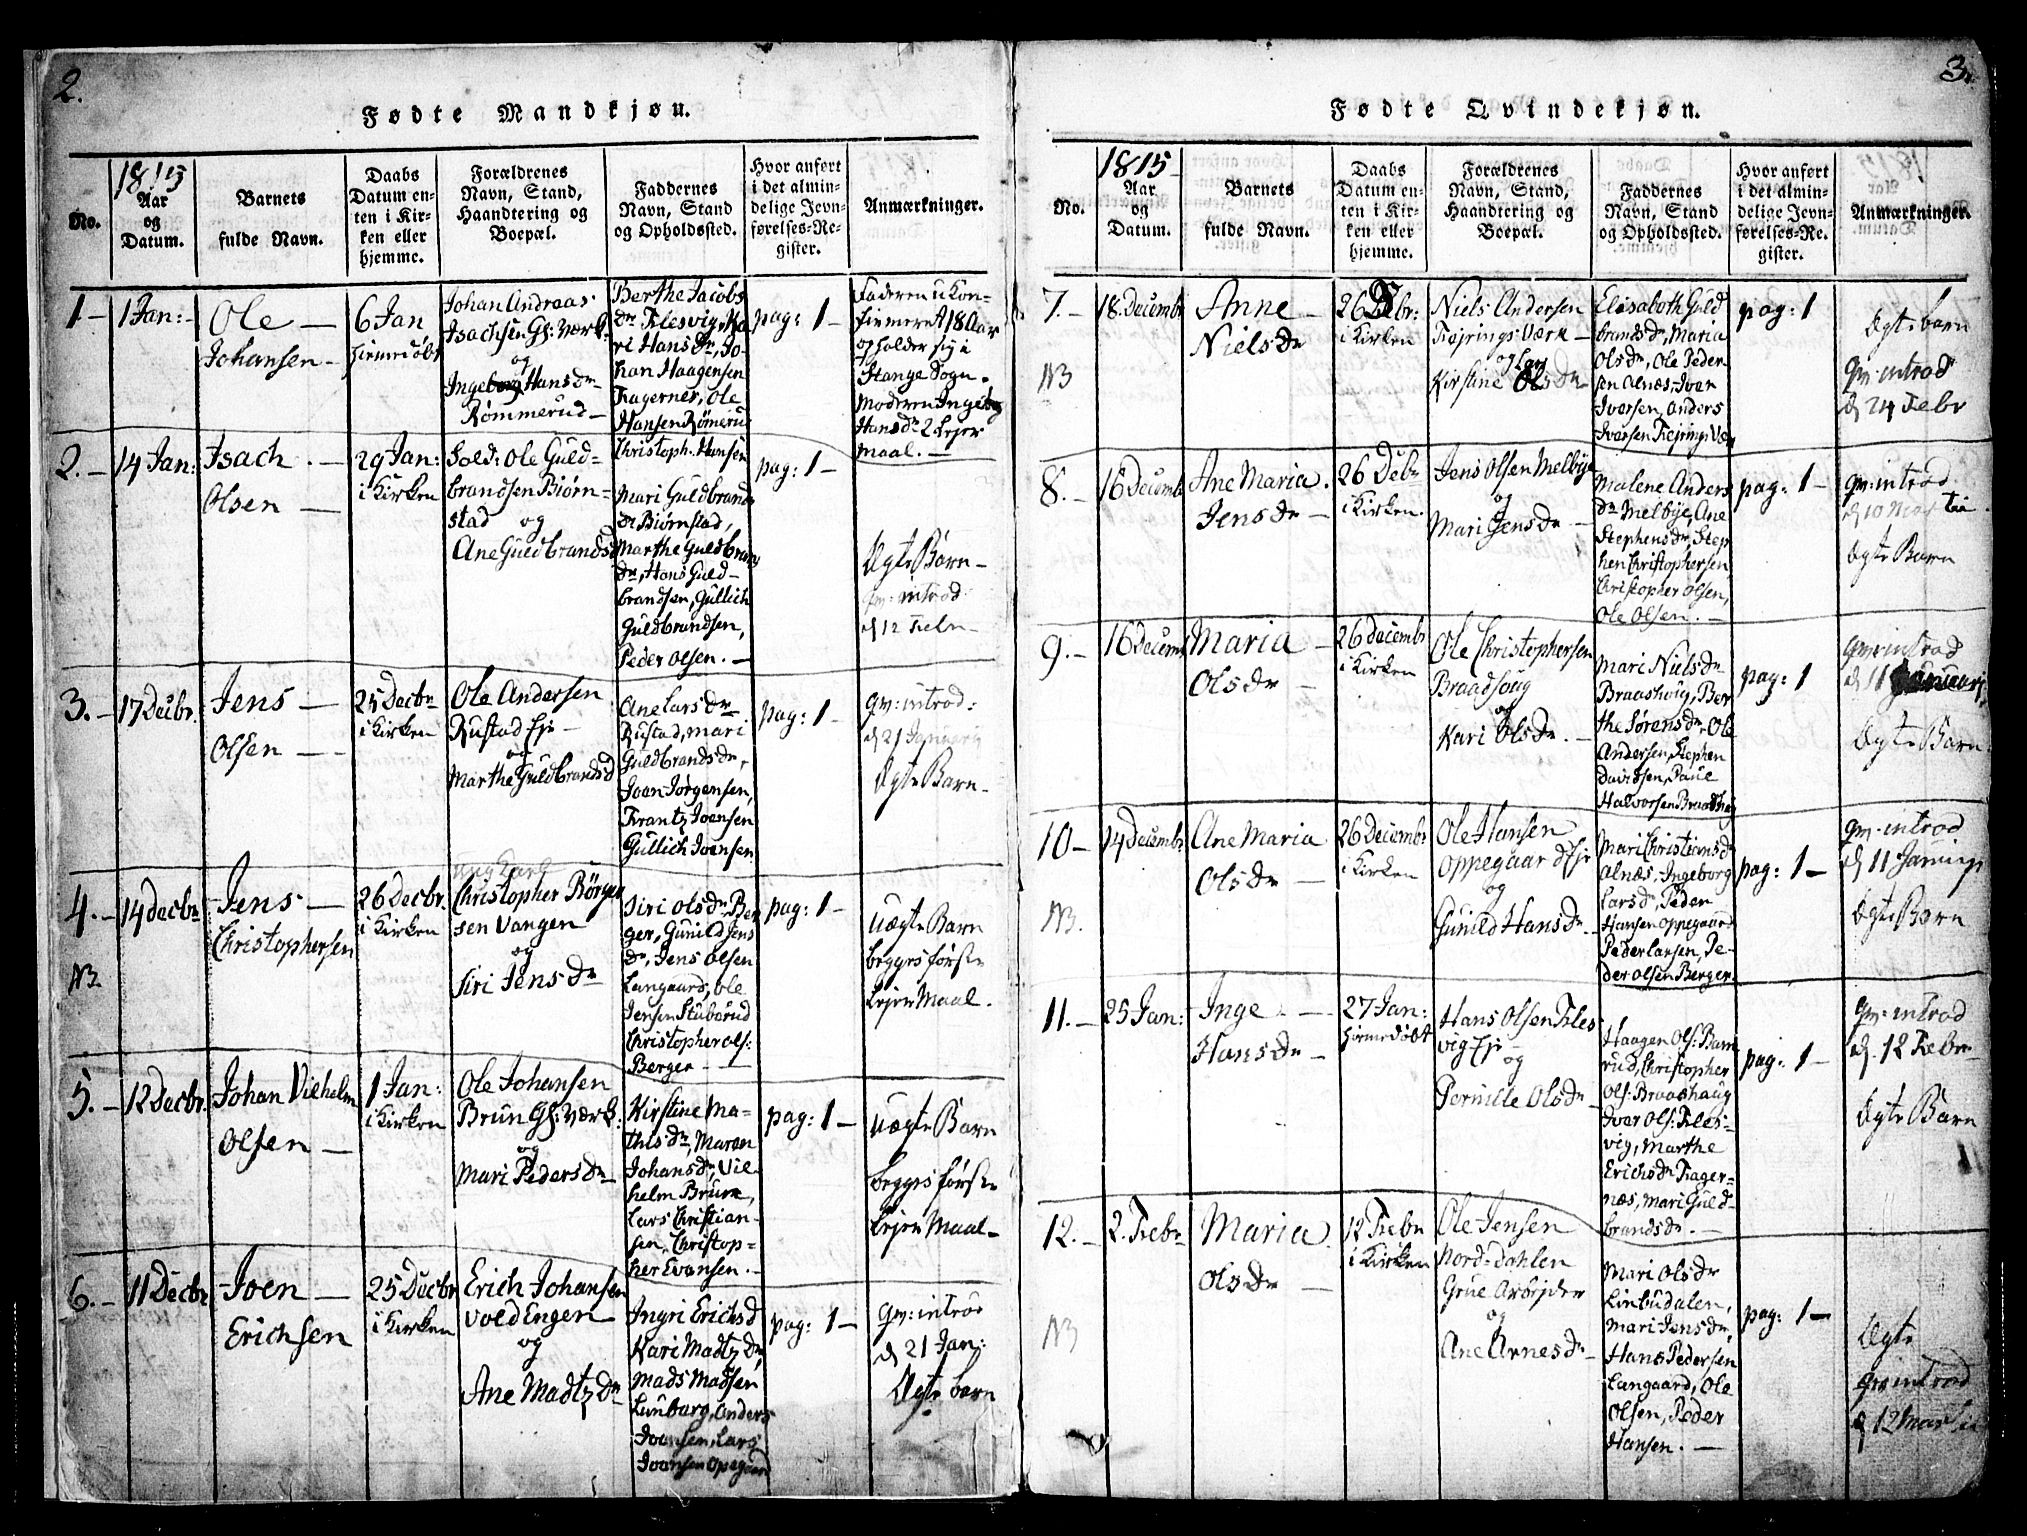 2.
Fødte Mandkjøn.
No.
1815
Aar
og
Datum.
Barnets
fulde Navn.
Daabs
Datum en-
ten i Kir-
ken eller
hjemme.
Forældrenes
Navn, Stand,
Haandtering og
Boepæl.
Faddernes
Navn, Stand
og Opholdssted.
Hvor anført
i det almin-
delige Jevn-
førelses-Re-
gister.
Anmærkninger.
1 —
1 Jan: -
Ole —
Johansen —
6 Jan
hiemedøbt
Johan Andreas
Isachsen Gl: Værk:
og
Ingeborg Hansdr
Rømmerud —
Berthe Jacobs
dr Flesvig, Ka
ri Hansdr, Jo-
han Haagensen
Fragernes, Ole
Hansen Rømerud
pag: 1 —
Faderen ukon-
firmeret 18 Aar
opholder sig i
Stange Sogn.
Moderen Ingeborg
Hansdr 2 Lejer
maal. —
2. —
14 Jan:
Isach. —
Olsen —
29 Jan:
i Kirken
Sold: Ole Guld-
brandsen Biørn-
stad og
Ane Guldbrandsd
Christoph. Hansen
Mari Guldbrands
dr Biørnstad,
Marthe Guldbrans
dr, Hans Guld-
brandsen, Gullich
Guldbrandsen,
Peder Olsen. —
pag: 1 —
Ægte Børn —
qv: introd
d 12 Febr
3. —
17 Decbr.
Jens —
Olsen —
25 Decbr
i Kirken
Ole Andersen
Rustad Eje —
og
Marthe Guldbrandsd
Ane Larsdr
Rustad, Mari
Guldbrandsdr,
Joen Jørgensen,
Frantz Joensen
Gullich Joensen
pag: 1 —
qv: introd:
d 21 Januarij
Ægte Barn —
4. —
N3
14 Decbr
Jens —
Christophersen
26 Decbr.
i Kirken
Ung Karl
Christopher Børger
sen Vangen
og
Siri Jensdr
Siri Olsdr Ber
ger, Gunild Jens
dr, Jens Olsen
Langaard, Ole
Jensen Stuberud
Christopher Ols:
Berger —
pag: 1 —
uægte Barn
begges første
Lejer Maal.
5. —
12 Decbr.
Johan Vilhelm
Olsen —
1 Jan:
i Kirken
Ole Johansen
Brun Gl: Værk:
og
Mari Pedersdr
Kirstine Ma-
thisdr, Maren
Johansdr, Vil-
helm Bruun,
Lars Christian-
sen, Christop-
her Evensen. —
pag: 1 —
uægte Barn
begges første
Lejer Maal —
6. —
11 Decbr
Joen —
Erichsen
25 Decbr
i Kirken
Erich Johansen
Vold Engen —
og
Ane Madtzdr
Ingri Erichsd
Kari Madtzdr,
Mads Madsen
Lunbarg, Anders
Joensen, Lars
Joensen Opegaard
pag: 1 —
qv: introd
d 21 Jan:
Ægte barn
3.
Fødte Qvindekjøn.
No.
1815
Aar
og
Datum.
Barnets
fulde Navn.
Daabs
Datum en-
ten i Kir-
ken eller
hjemme.
Forældrenes
Navn, Stand,
Haandtering og
Boepæl.
Faddernes
Navn, Stand
og Opholdssted.
Hvor anført
i det almin-
delige Jevn-
førelses-Re-
gister.
Anmærkninger.
7. —
N3
18 Decembr
Anne —
Nielsdr
26 Dbr:
i Kirken
Niels Andersen
Fejrings Værk —
og
Kirstine Olsdr
Elisabeth Guld
brandsdr, Maria
Olsdr, Ole Peder-
sen Alnæs, Iver
Iversen, Anders
Iversen Fejrings Vær
pag: 1
Ægte barn
qv: introd
d 24 Febr
8. —
16 Decembr
Ane Maria.
Jensdr —
26 Debr
i Kirken.
Jens Olsen Melbye
og
Mari Jensdr —
Malene Anders
dr Melbye, Ane
Stephensdr, Step
hen Christophersen,
Christopher Olsen,
Ole Olsen. —
pag: 1 —
qv: introd
d 10 Martii.
Ægte Barn
9. —
16 Decemb
Maria —
Olsdr —
26 Decembr
i Kirken
Ole Christophersen
Braadhoug
og
Kari Olsdr. —
Mari Nielsdr
Braashoug, Ber
the Sørensdr, Ole
Andersen, Stephen
Davidsen, Paul
Halvorsen Braadhoug
pag: 1
qv: introd
d 11 Januarij
Ægte Barn.
10 —
N3.
14 Decembr
Ane Maria
Olsdr —
26 Decembr
i Kirken
Ole Hansen
Oppegaar d Eje
og
Gunild Hansdr. —
Mari Christiansdr
Alnæs, Ingeborg
Larsdr, Peder
Hansen Oppegaard
Peder Larsen, Pe-
der Olsen Berger.
pag: 1 —
qv: introd
d 11 Januarij
Ægte Barn
11. —
25 Jan:
Inge —
Hansdr —
27 Jan:
hiemedøbt
Hans Olsen Fles
vig Eje —
og
Pernille Olsdr —
Haagen Ols: Bam
rud, Christopher
Ols: Braashaug
Iver Ols: Fles-
vig, Marthe
Erichsdr Frager-
næs, Mari Guld-
brandsdr. —
pag: 1 —
qv: introd
d. 12 Febr —
Ægte Barn
12. —
N3
2. Febr
Maria.
Olsdr —
12 Febr
i Kirken
Ole Jensen
Nord-Dahlen
Grue Arbejder
og
Ane Arnesdr —
Mari Olsdr
Linbudalen,
Mari Jensdr,
Hans Pedersen
Langaard, Ole
Olsen, Peder
Hansen. —
pag: 1 —
Ægte
qv introd
d 12 Martii